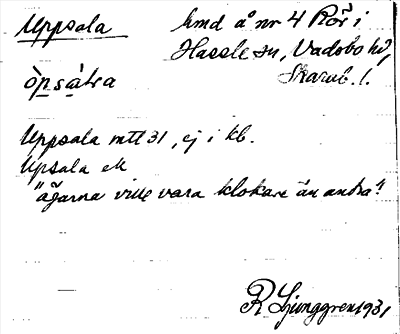 Uppsala
hmd å nr 4 Rör i
Hassle sn, Vadsbo hd,
Skarab. l.
òpsàtra
Uppsala mtl 31, ej i kb.
Upsala ek
"ägarna ville vara klokare än andra"
R Ljunggren 1931